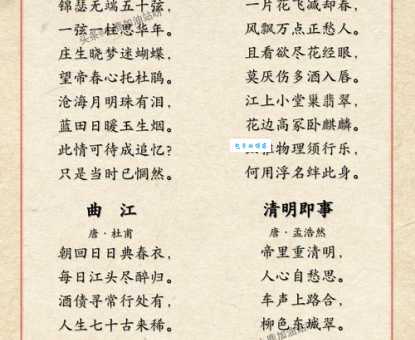 锦瑟无端五十弦，
一弦一柱思华年。
庄生晓梦迷蝴蝶，
望帝春心托杜鹃。
沧海月明珠有泪，
蓝田日暖玉生烟。
此情可待成追忆？
只是当时已惘然。
一片花飞减却春，
风飘万点正愁人。
且看欲尽花经眼，
莫厌伤多酒入唇。
江上小堂巢翡翠，
花边高冢卧麒麟。
物理须行乐，
何用浮名绊此身。
曲 江
唐·杜甫
朝回日日典春衣，
每日江头尽醉归。
酒债寻常行处有，
人生七十古来稀。
清明即事
唐·孟浩然
帝里重清明，
人心自愁思。
车声上路合，
柳色东城翠。